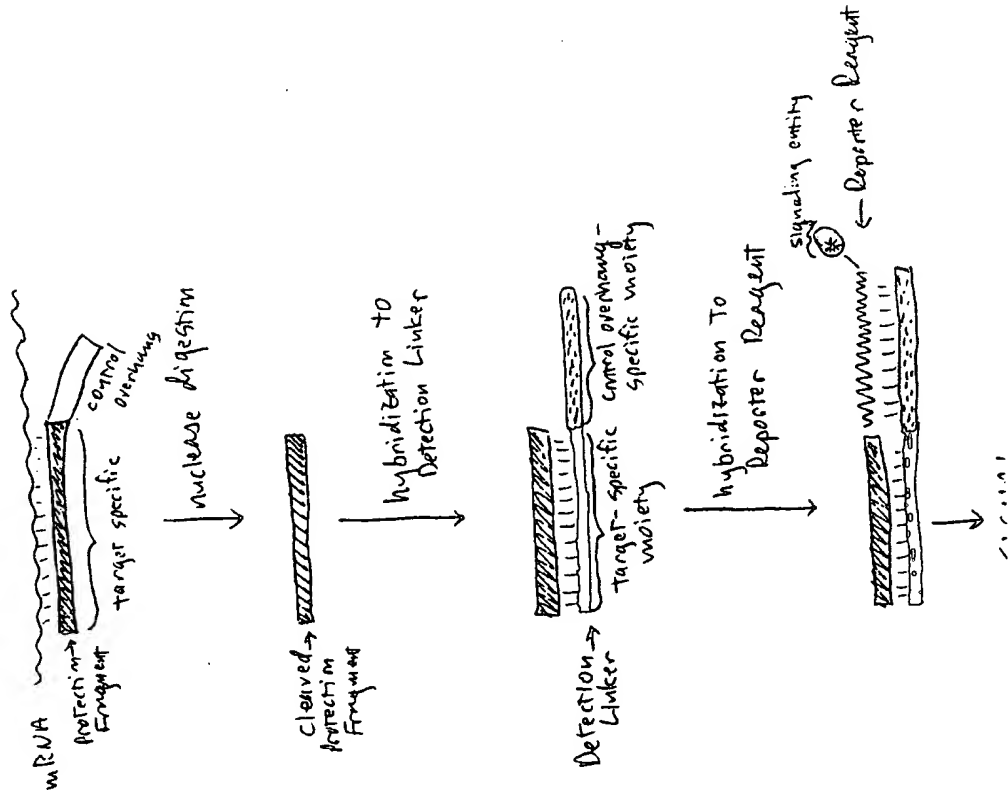 mRNA
Protection
Fragment
target specific
control
overhang
nuclease digestion
Cleaved
protection
Fragment
hybridization to
Detection Linker
Detection
Linker
target-specific
moiety
control overhang-
specific moiety
hybridization To
Reporter Reagent
signaling entity
Reporter Reagent